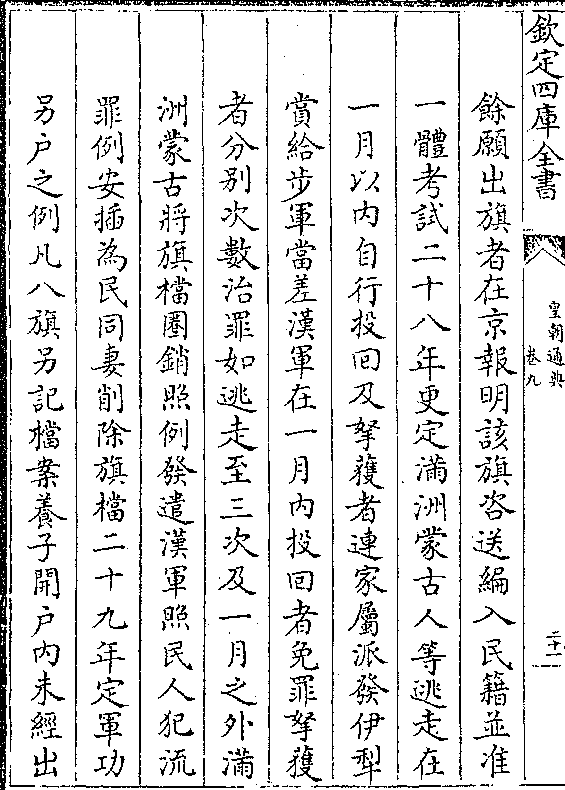 欽定四庫全書
皇朝通典
卷九
二十一
餘願出旗者在京報明該旗咨送編入民籍並准
一體考試二十八年更定滿洲蒙古人等逃走在
一月以内自行投囘及拏獲者連家屬派發伊犁
賞給步軍當差漢軍在一月内投囘者免罪拏獲
者分别次數治罪如逃走至三次及一月之外滿
洲蒙古將旗檔圏銷照例發遣漢軍照民人犯流
罪例安插為民同妻削除旗檔二十九年定軍功
另户之例凡八旗另記檔案養子開户内未經出